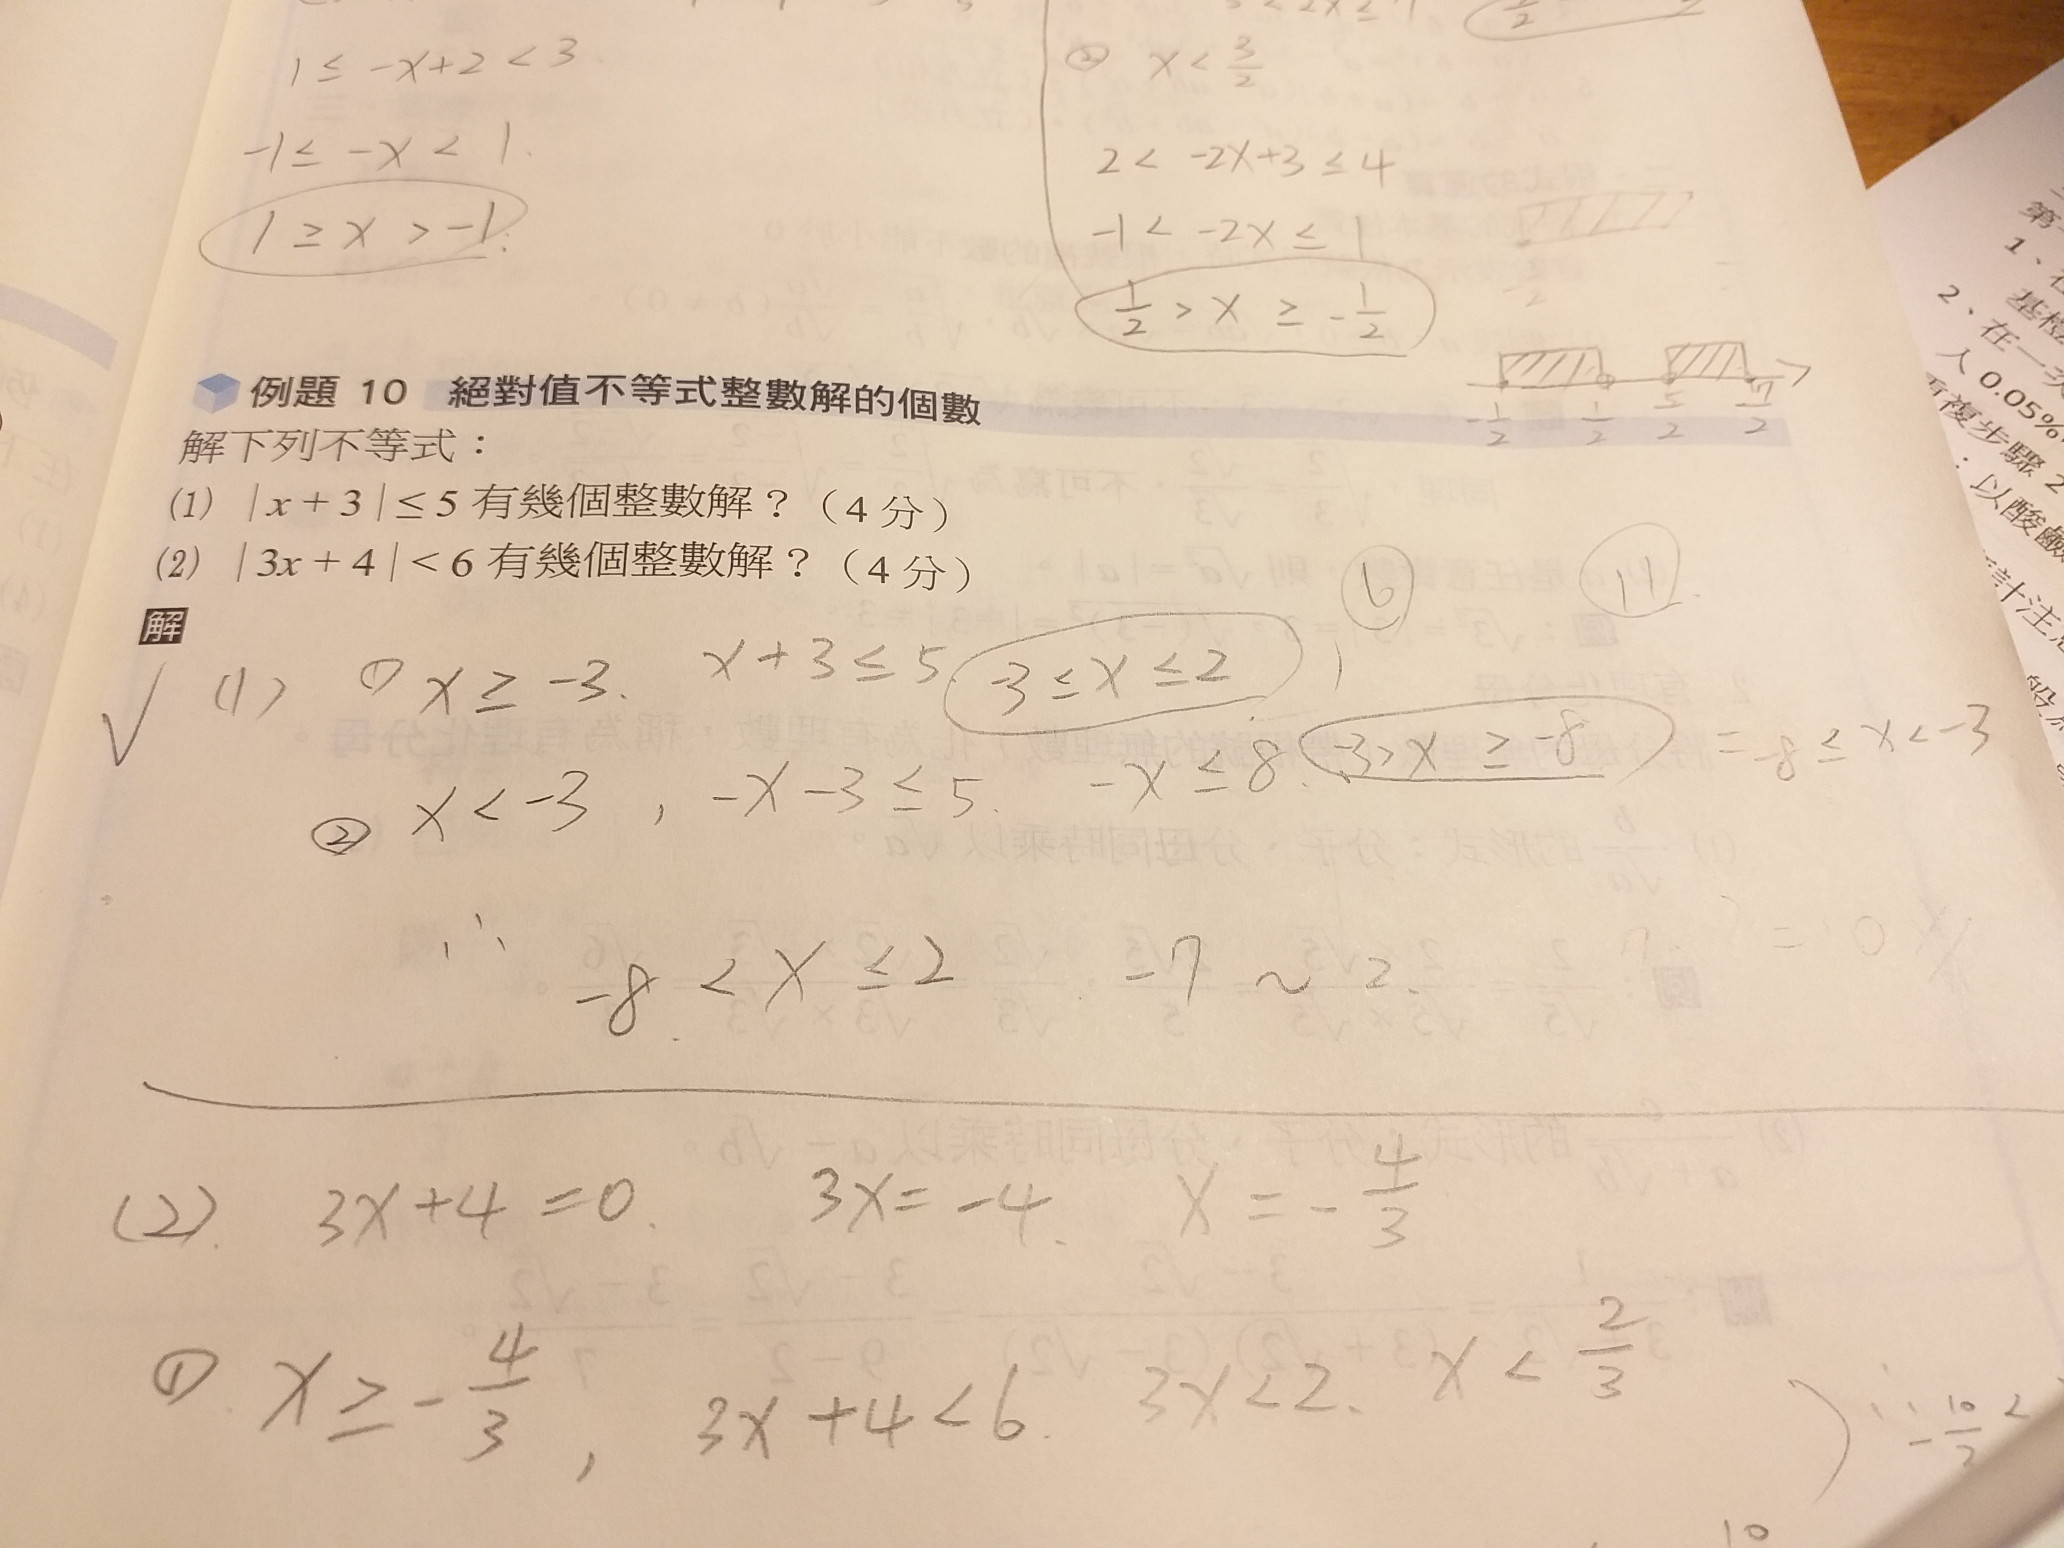 1 ≤ -x+2 < 3
-1 ≤ -x < 1.
1 ≥ x > -1.
② x < 3/2
2 < -2x+3 ≤ 4
-1 < -2x ≤ 1
1/2 > x ≥ -1/2
-1/2 1/2 5/2 7/2
例題 10 絕對值不等式整數解的個數
解下列不等式：
(1) |x + 3| ≤ 5 有幾個整數解？（4 分）
(2) |3x + 4| < 6 有幾個整數解？（4 分）
解
6 11.
(1) ① x ≥ -3. x+3 ≤ 5 -3 ≤ x ≤ 2
② x < -3 , -x-3 ≤ 5. -x ≤ 8. -3 > x ≥ -8 = -8 ≤ x < -3
∴ -8 < x ≤ 2 -7 ~ 2.
(2). 3x+4 = 0. 3x = -4. x = -4/3
① x ≥ -4/3 , 3x+4 < 6. 3x < 2. x < 2/3
10
第
1、
基
2、在一
人 0.05%
複步驟 2
：以酸鹼
計注